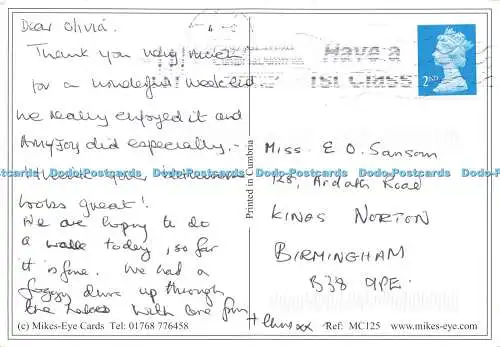 Dear Olivia.
Thank you very much
for a wonderful weekend
we really enjoyed it and
Amy Joy did especially. -
looks great!
We are hoping to do
a walk today, so far
it is fine. We had a
foggy drive up through
the lakes with one
+ Chris xx
Have a
1st Class
2ND
Miss. E O. Sansom
128, Ardath Road
KINGS NORTON
BIRMINGHAM
B38 9PE.
Printed in Cumbria
Dodo-Postcards Dodo-Postcards Dodo-Postcards Dodo-Postcards Dodo-Postcards
(c) Mikes-Eye Cards Tel: 01768 776458
Ref: MC125 www.mikes-eye.com